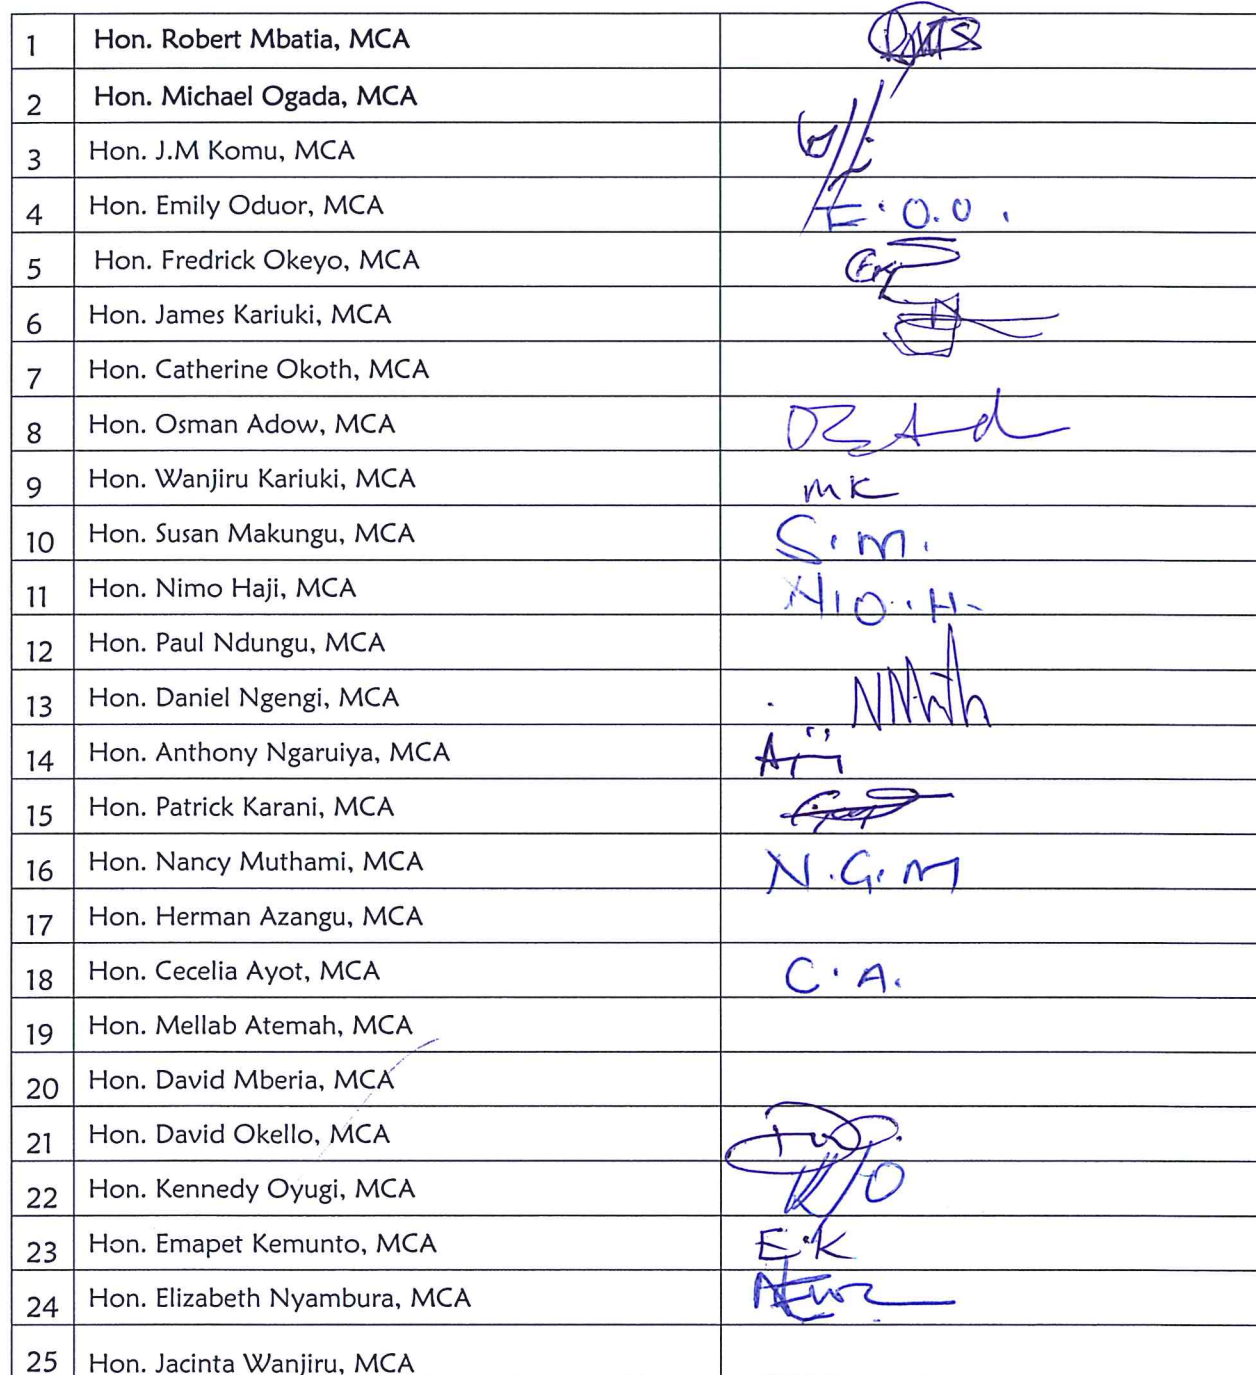 1 Hon. Robert Mbatia, MCA
2 Hon. Michael Ogada, MCA
3 Hon. J.M Komu, MCA
4 Hon. Emily Oduor, MCA E.O.O.
5 Hon. Fredrick Okeyo, MCA
6 Hon. James Kariuki, MCA
7 Hon. Catherine Okoth, MCA
8 Hon. Osman Adow, MCA
9 Hon. Wanjiru Kariuki, MCA MK
10 Hon. Susan Makungu, MCA S.M.
11 Hon. Nimo Haji, MCA
12 Hon. Paul Ndungu, MCA
13 Hon. Daniel Ngengi, MCA
14 Hon. Anthony Ngaruiya, MCA
15 Hon. Patrick Karani, MCA
16 Hon. Nancy Muthami, MCA N.G.M
17 Hon. Herman Azangu, MCA
18 Hon. Cecelia Ayot, MCA C.A.
19 Hon. Mellab Atemah, MCA
20 Hon. David Mberia, MCA
21 Hon. David Okello, MCA
22 Hon. Kennedy Oyugi, MCA
23 Hon. Emapet Kemunto, MCA E.K
24 Hon. Elizabeth Nyambura, MCA
25 Hon. Jacinta Wanjiru, MCA